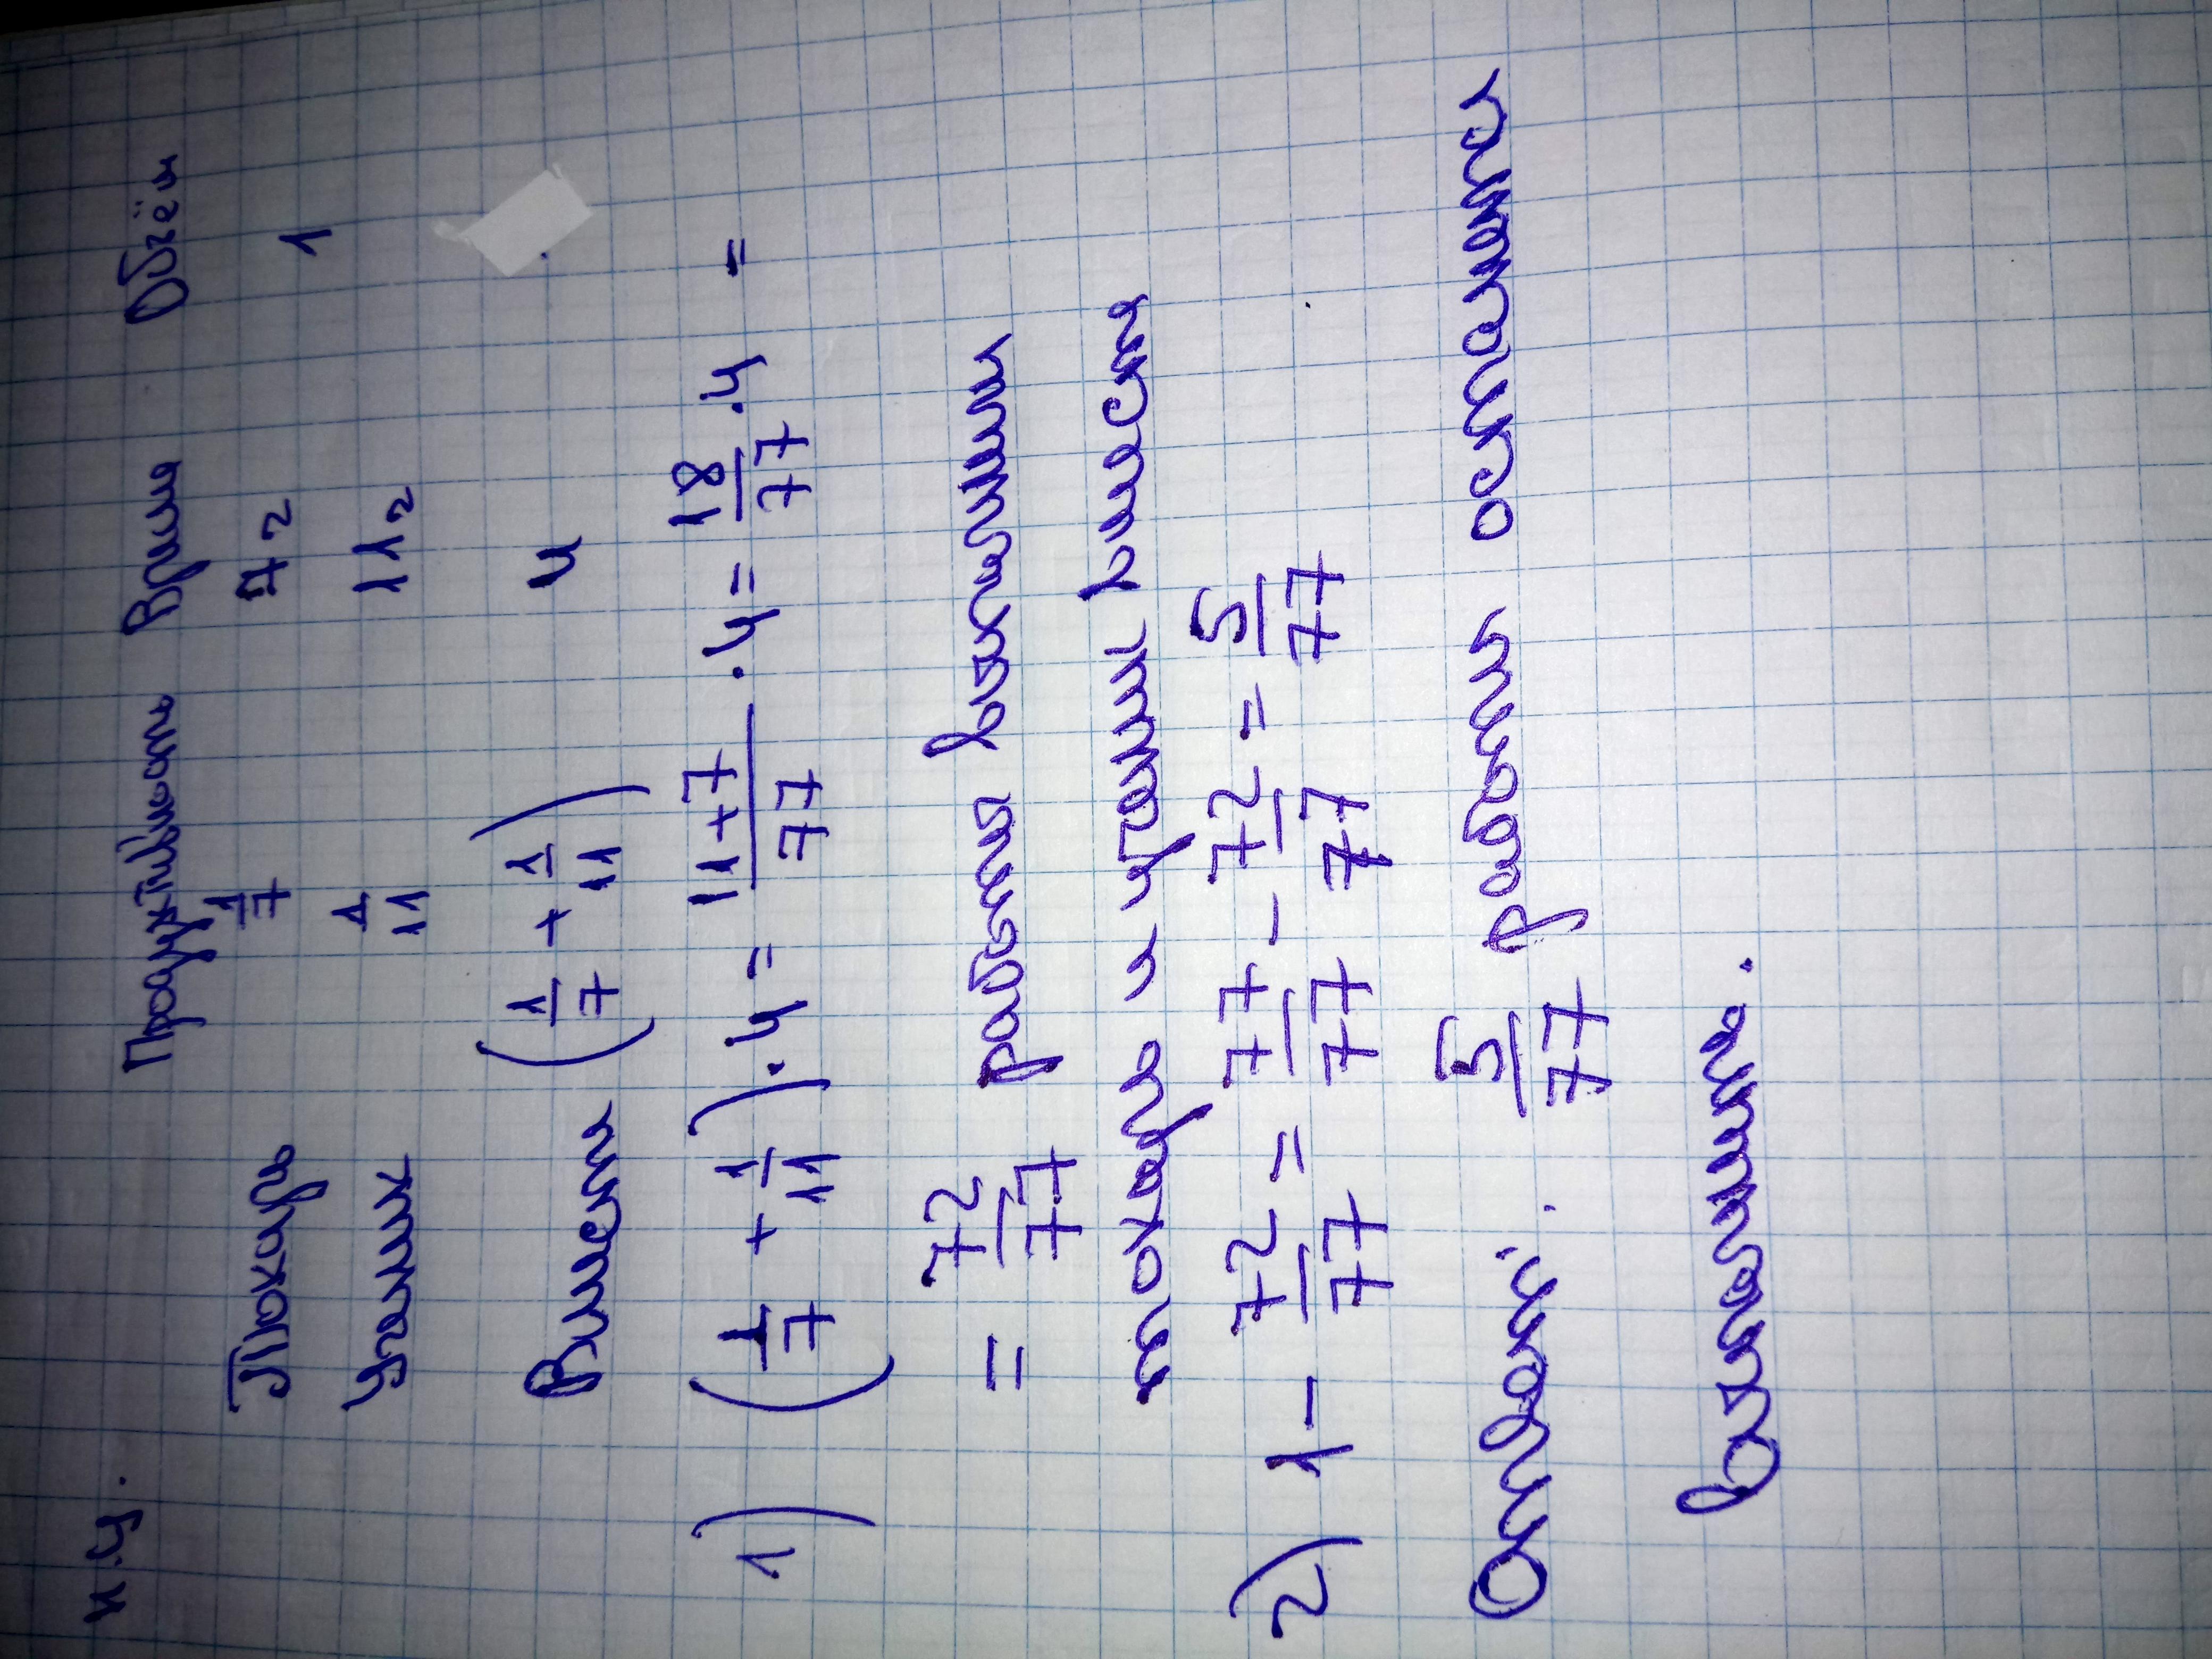 н.ч.
Продуктивность Время Объём
Токарь 1/7 7г 1
Ученик 1/11 11г
Вместе (1/7 + 1/11) 4
1) (1/7 + 1/11) · 4 = (11+7)/77 · 4 = 18/77 · 4 =
= 72/77 работы выполнили
токарь и ученик вместе
2) 1 - 72/77 = 77/77 - 72/77 = 5/77
Ответ: 5/77 работы осталось
выполнить.